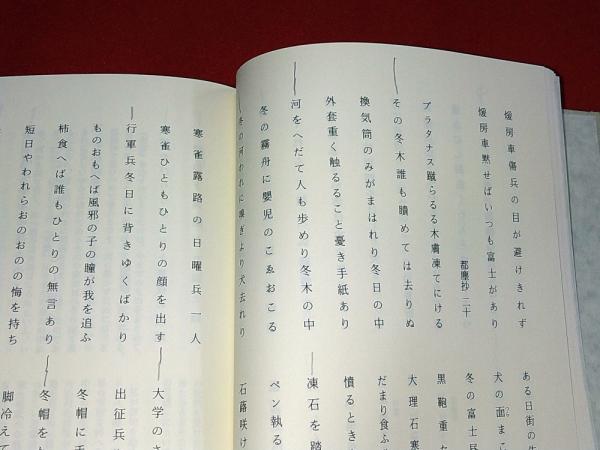 煖房車傷兵の目が避けきれず
煖房車黙せばいつも富士があり
都塵抄 二十
プラタナス蹴らるる木膚凍てにける
その冬木誰も瞶めては去りぬ
換気筒のみがまはれり冬日の中
外套重く触るること憂き手紙あり
河をへだて人も歩めり冬木の中
冬の霧舟に嬰児のこゑおこる
冬の河われに嗅ぎより犬去れり
ある日街の
犬の面ま
冬の富士
黒鞄重
大理石寒
だまり食ふ
憤るとき
凍石を踏
ペン執る
石蕗咲け
寒雀露路の日曜兵一人
寒雀ひともひとりの顔を出す
行軍兵冬日に背きゆくばかり
ものおもへば風邪の子の瞳が我を追ふ
柿食へば誰もひとりの無言あり
短日やわれらおのおの悔を持ち
大学の
出征兵
冬帽に
冬帽を
脚冷えて